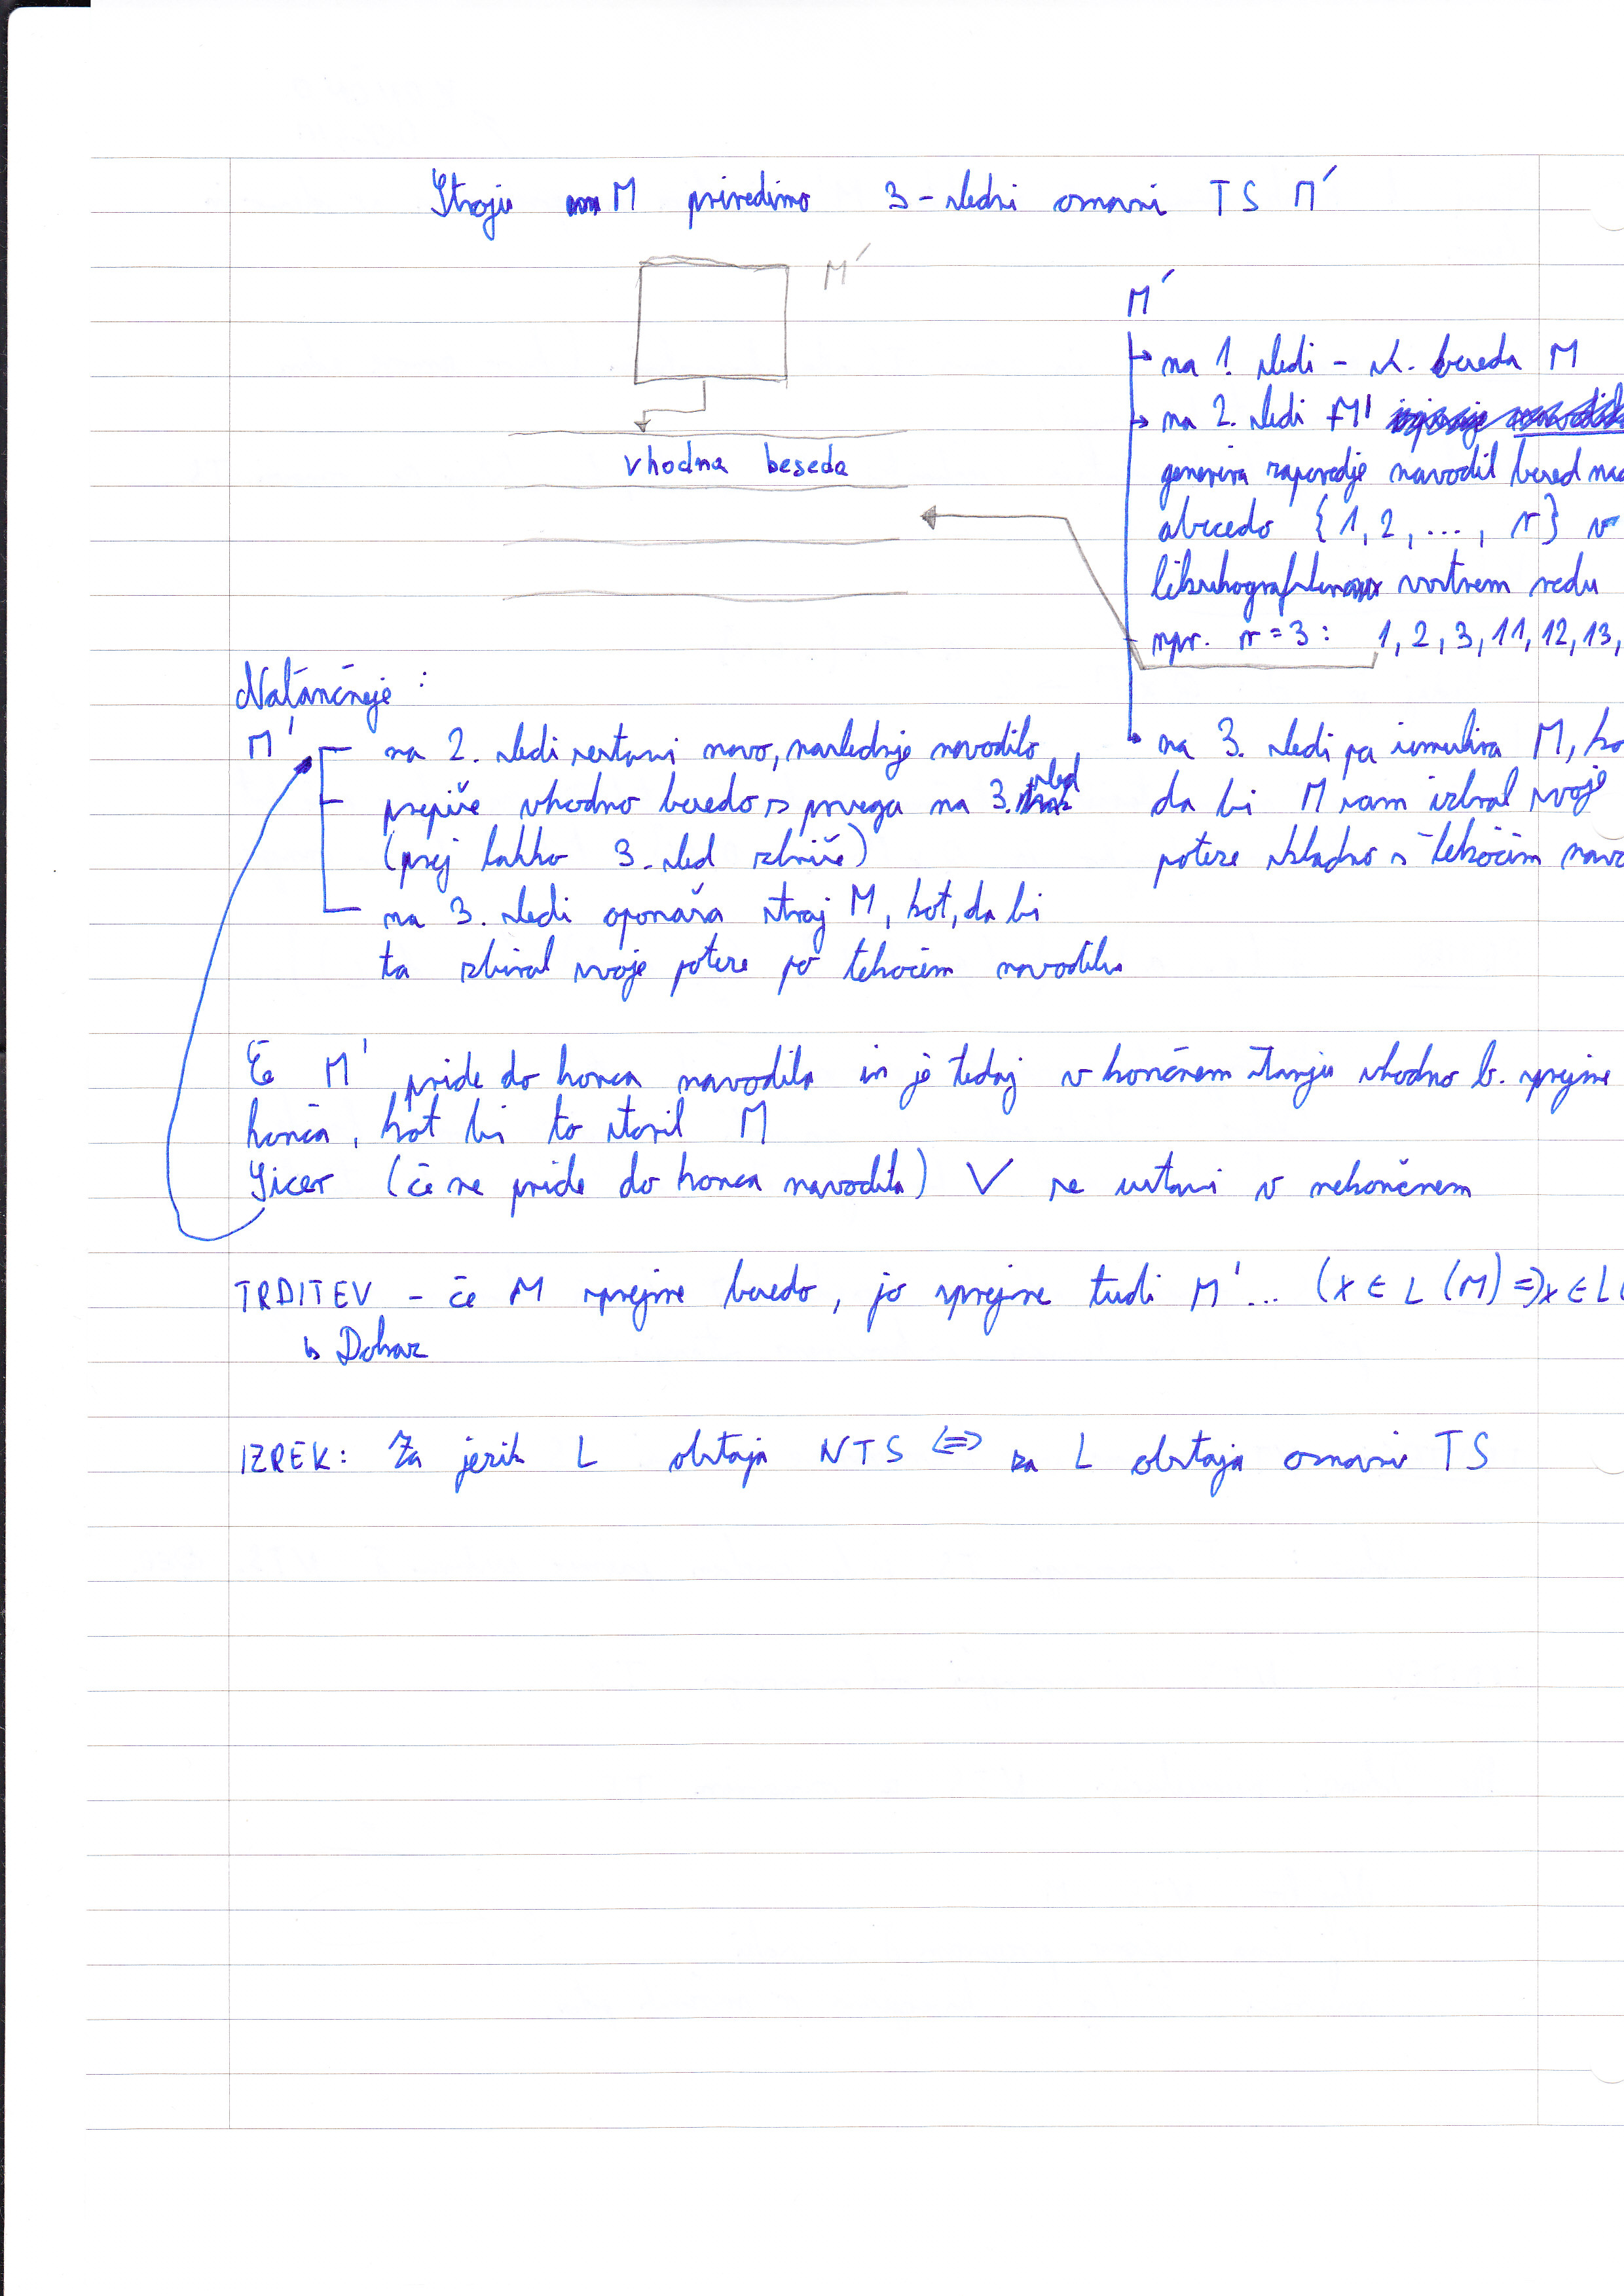 Stroju M priredimo 3-sledni osnovni TS M'
M'
vhodna beseda
M'
na 1. sledi - vh. beseda M
na 2. sledi M'
generira zaporedje navodil besed nad
abecedo {1, 2, ..., r} v
vrstnem redu
npr. r = 3: 1, 2, 3, 11, 12, 13,
na 3. sledi pa simulira M, ko
da bi M sam izbral svoje
poteze skladno s tekočim navo
Natančneje:
M'
na 2. sledi sestavi novo, naslednje navodilo
prepiše vhodno besedo s prvega na 3. sled
(prej lahko 3. sled zbriše)
na 3. sledi oponaša stroj M, kot, da bi
ta izbiral svoje poteze po tekočem navodilu
Če M' pride do konca navodila in je tedaj v končnem stanju vhodno b. sprejme
konča, kot bi to storil M
Sicer (če ne pride do konca navodila) V se ustavi v nekončnem
TRDITEV - če M sprejme besedo, jo sprejme tudi M' ... (x ∈ L (M) => x ∈ L (
↳ Dokaz
IZREK: Za jezik L obstaja NTS <=> za L obstaja osnovni TS